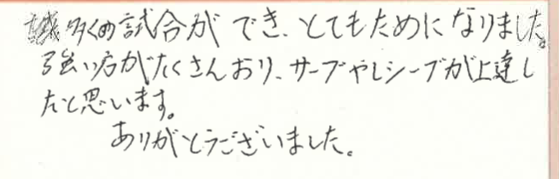 多くの試合ができ、とてもためになりました。
強い方がたくさんおり、サーブやレシーブが上達し
たと思います。
ありがとうございました。